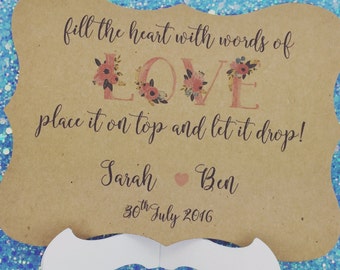 fill the heart with words of
LOVE
place it on top and let it drop!
Sarah Ben
30th July 2016